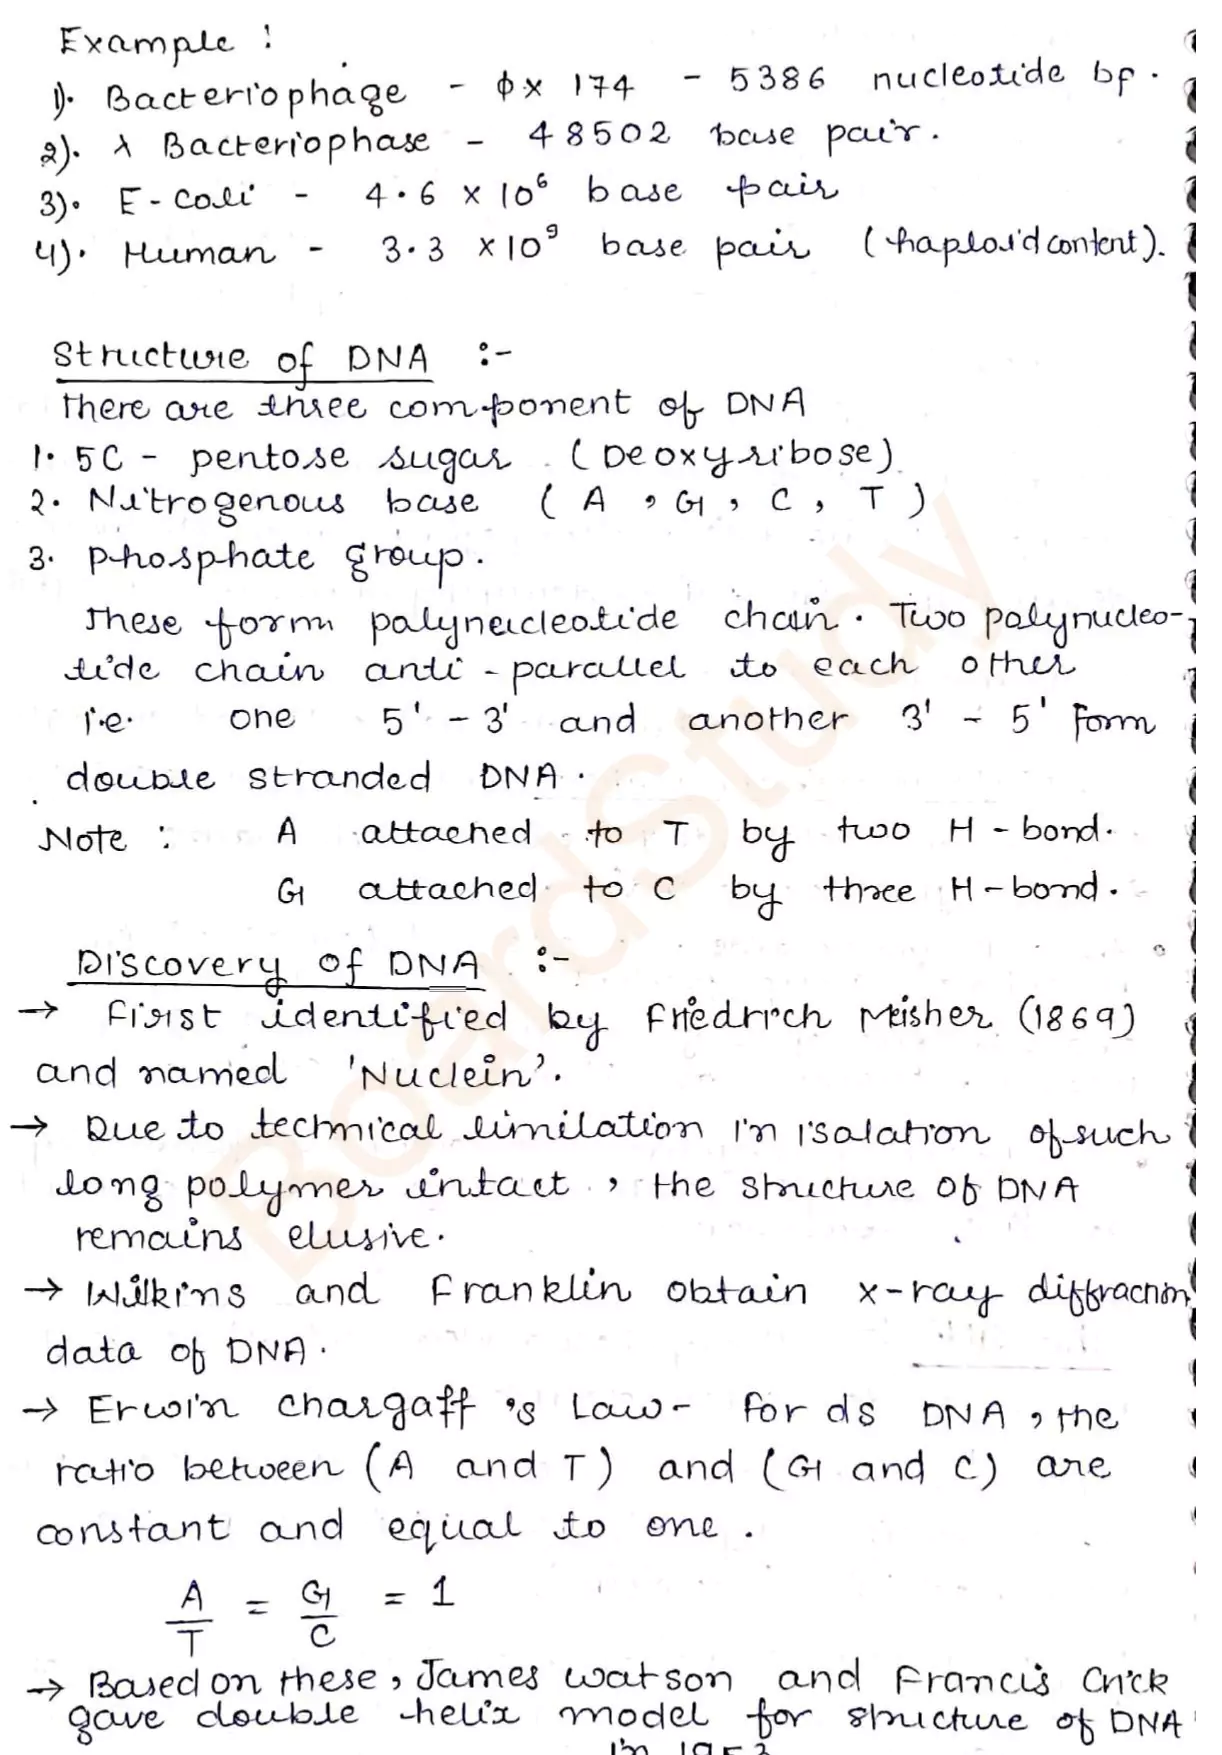 Example :
1). Bacteriophage - φ x 174 - 5386 nucleotide bp.
2). λ Bacteriophase - 48502 base pair.
3). E-coli - 4.6 x 10⁶ base pair
4). Human - 3.3 x 10⁹ base pair (haploid content).
Structure of DNA :-
There are three component of DNA
1. 5C - pentose sugar (Deoxyribose)
2. Nitrogenous base (A, G, C, T)
3. Phosphate group.
These form polynucleotide chain. Two polynucleo-
tide chain anti-parallel to each other
i.e. one 5' - 3' and another 3' - 5' Form
double stranded DNA.
Note : A attached to T by two H-bond.
G attached to C by three H-bond.
Discovery of DNA :-
→ First identified by Friedrich Meisher (1869)
and named 'Nuclein'.
→ Due to technical limilation in isolation of such
long polymer intact, the structure of DNA
remains elusive.
→ Wilkins and Franklin obtain x-ray diffraction
data of DNA.
→ Erwin chargaff's Law - For ds DNA, the
ratio between (A and T) and (G and C) are
constant and equal to one.
A/T = G/C = 1
→ Based on these, James Watson and Francis Crick
gave double helix model for structure of DNA
in 1953
BoardStudy